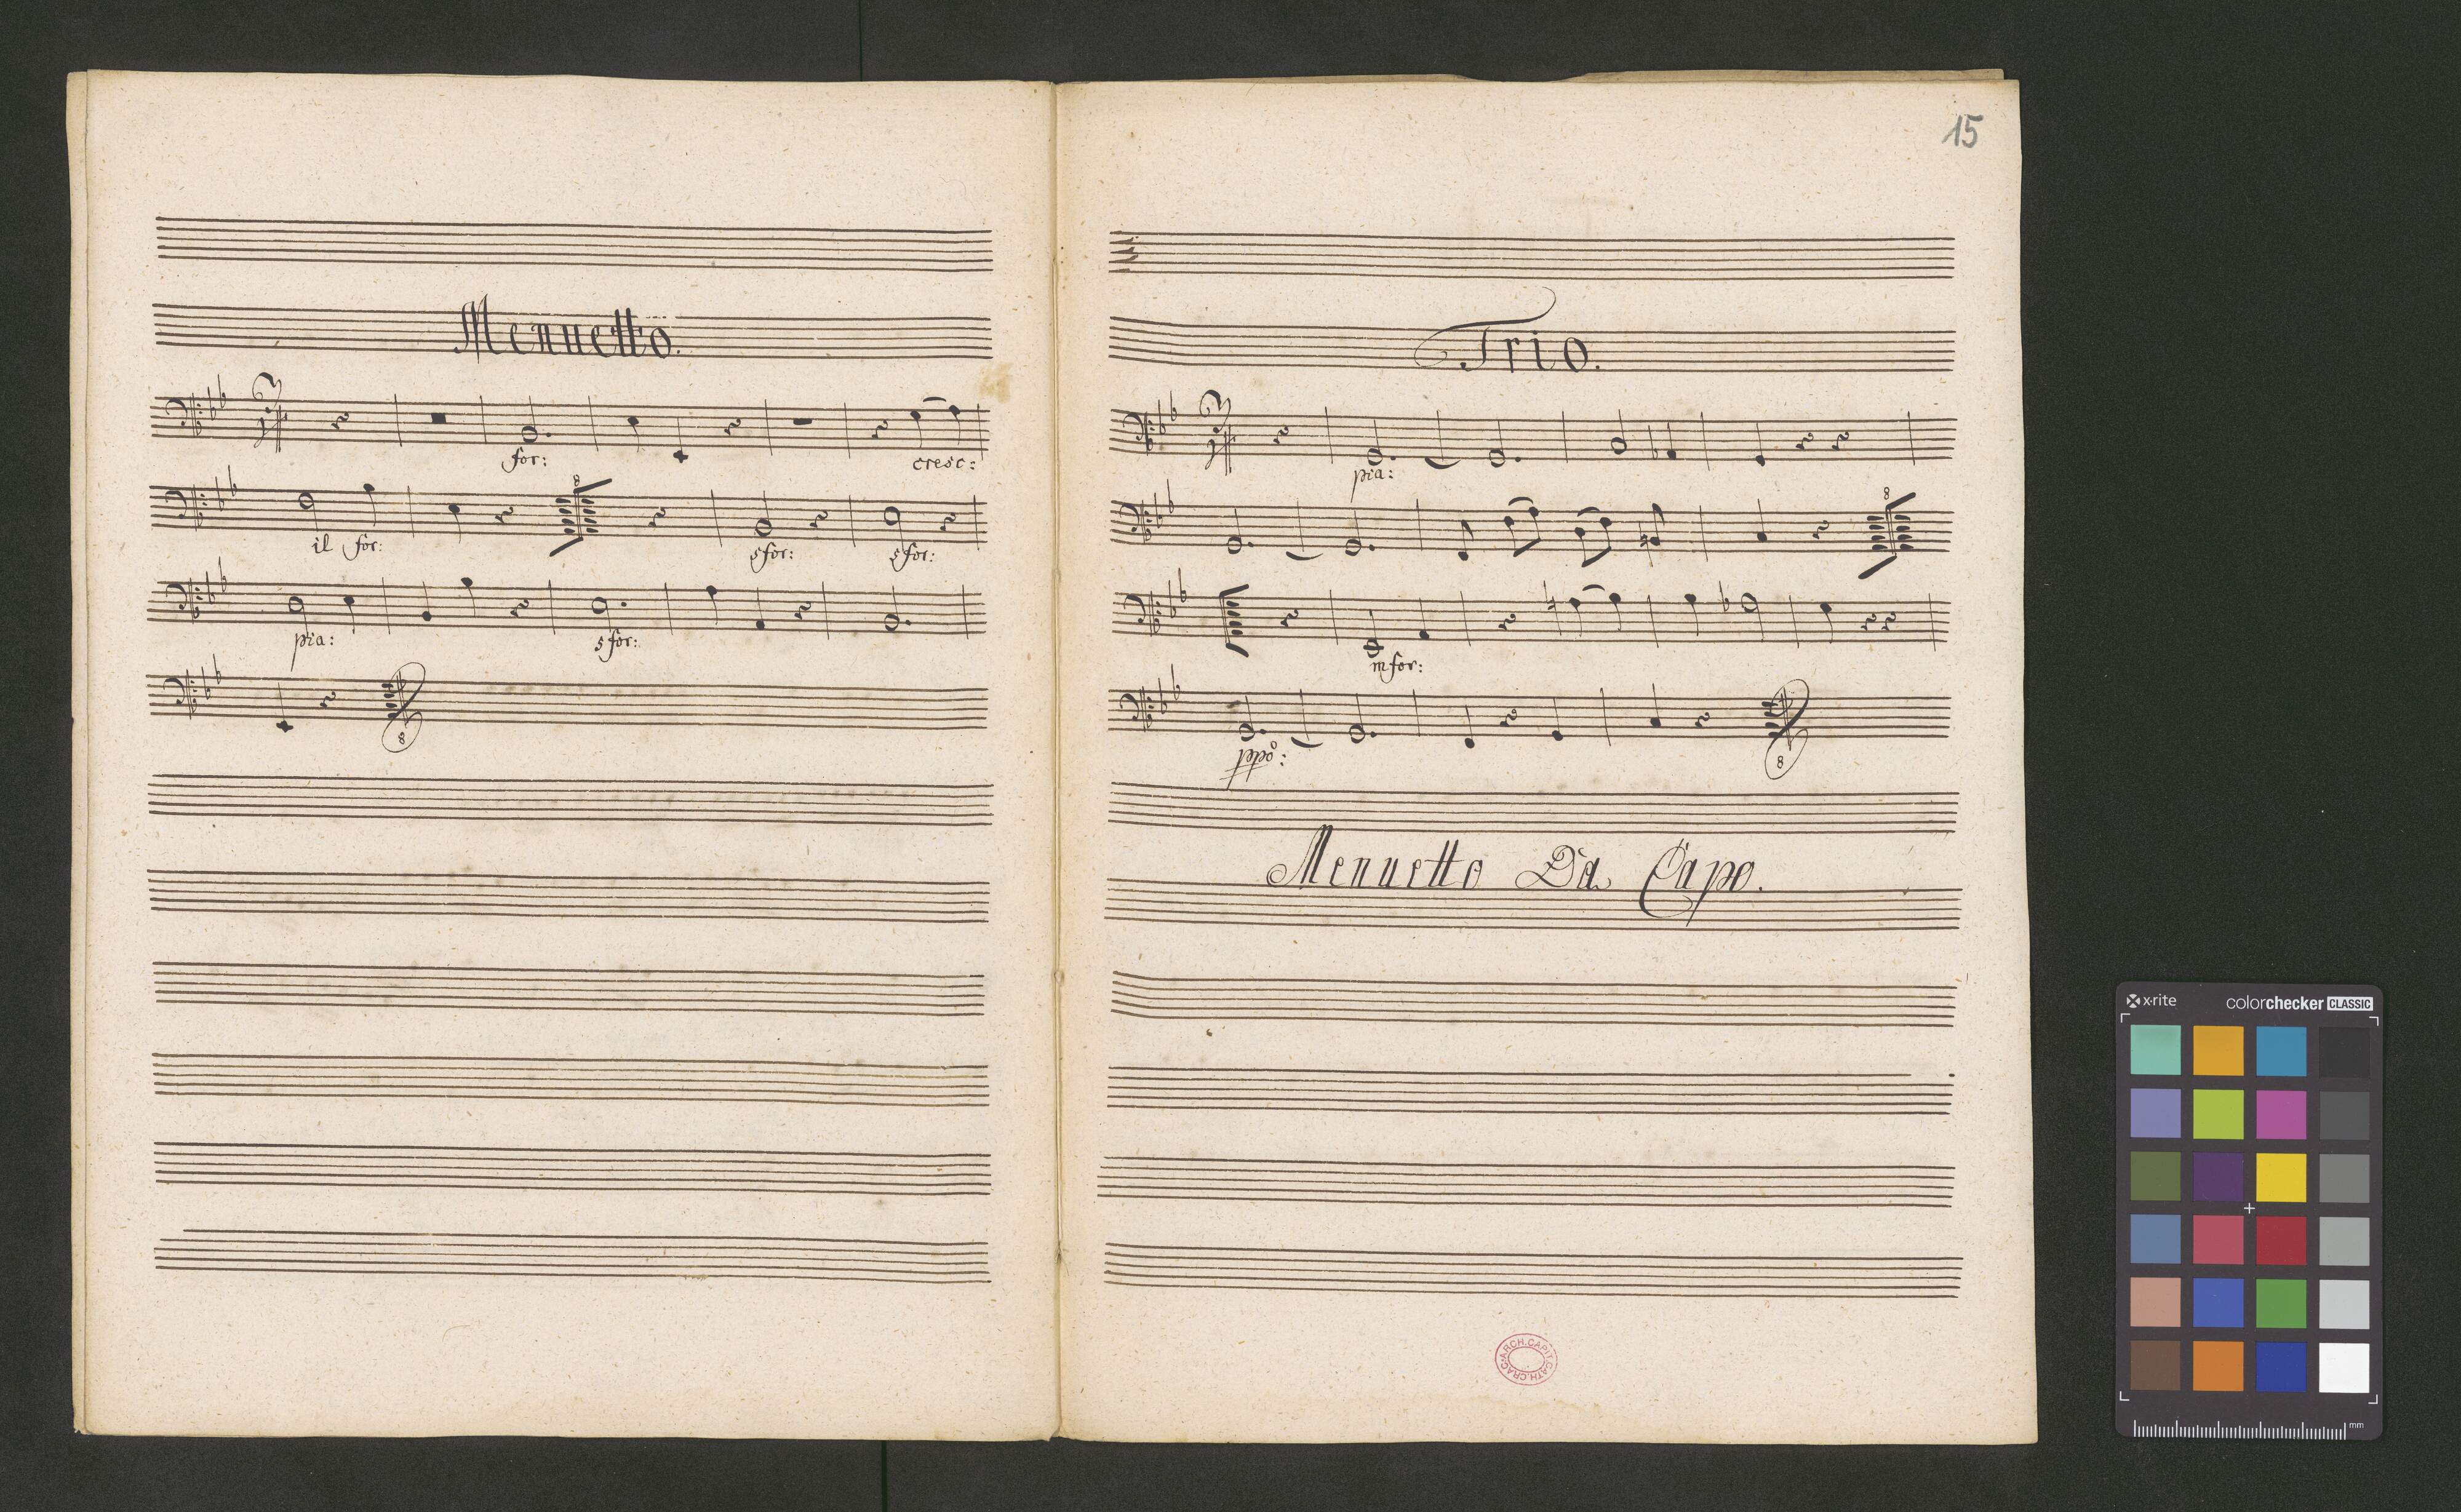 Menuetto.
for:
cresc:
8
il for:
sfor:
sfor:
pia:
sfor:
8
15
Trio.
pia:
8
mfor:
ppo:
8
Menuetto Da Capo.
ARCH.CAPIT.CATH.CRAC.
x-rite
colorchecker CLASSIC
mm